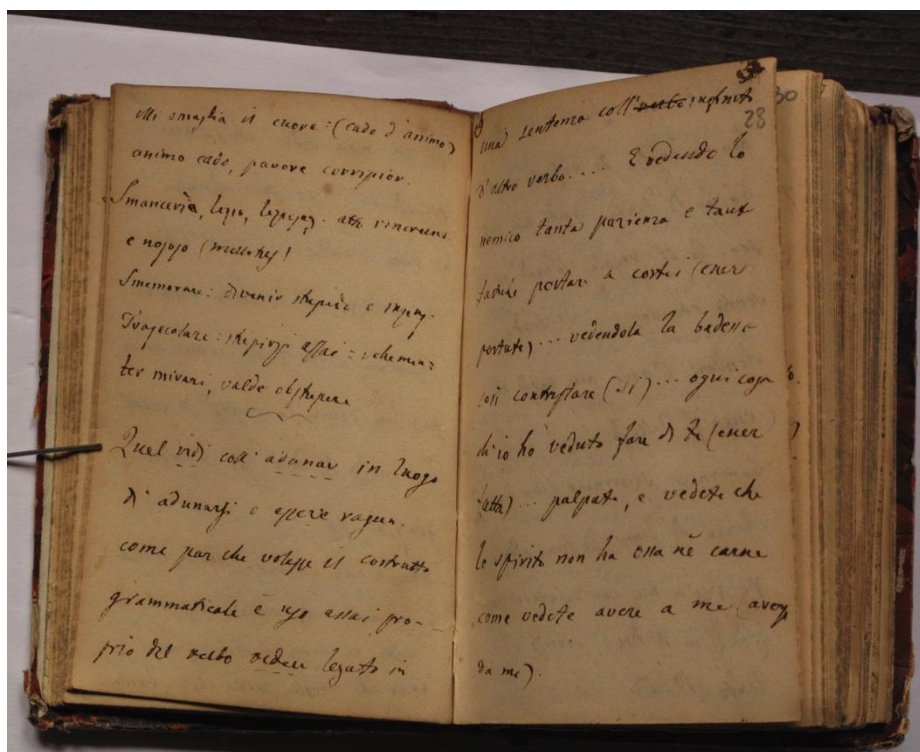 Mi smaglia il cuore: (cado d'animo)
animo cado, pavore corripior.
Smancerìa, lezio, atto
e nojoso (mollities)
Smemorare: divenir stupido e
Trasecolare: stupirsi assai: vehemen-
ter mirari, valde obstupere
Quel vidi coll'adunar in luogo
di adunarsi o essere
come par che volesse il costrutto
grammaticale è uso assai pro-
prio del verbo vedere legato in
30
28
una sentenza coll' infinito
d'altro verbo.... E vedendo lo
nemico tanta pazienza e tant
portare a costei (esser
portate)... vedendola la badessa
così contristare (si)... ogni cosa
ch'io ho veduto fare di te (esser
fatta)... palpate, e vedete che
lo spirito non ha ossa nè carne
come vedete avere a me (aversi
da me).